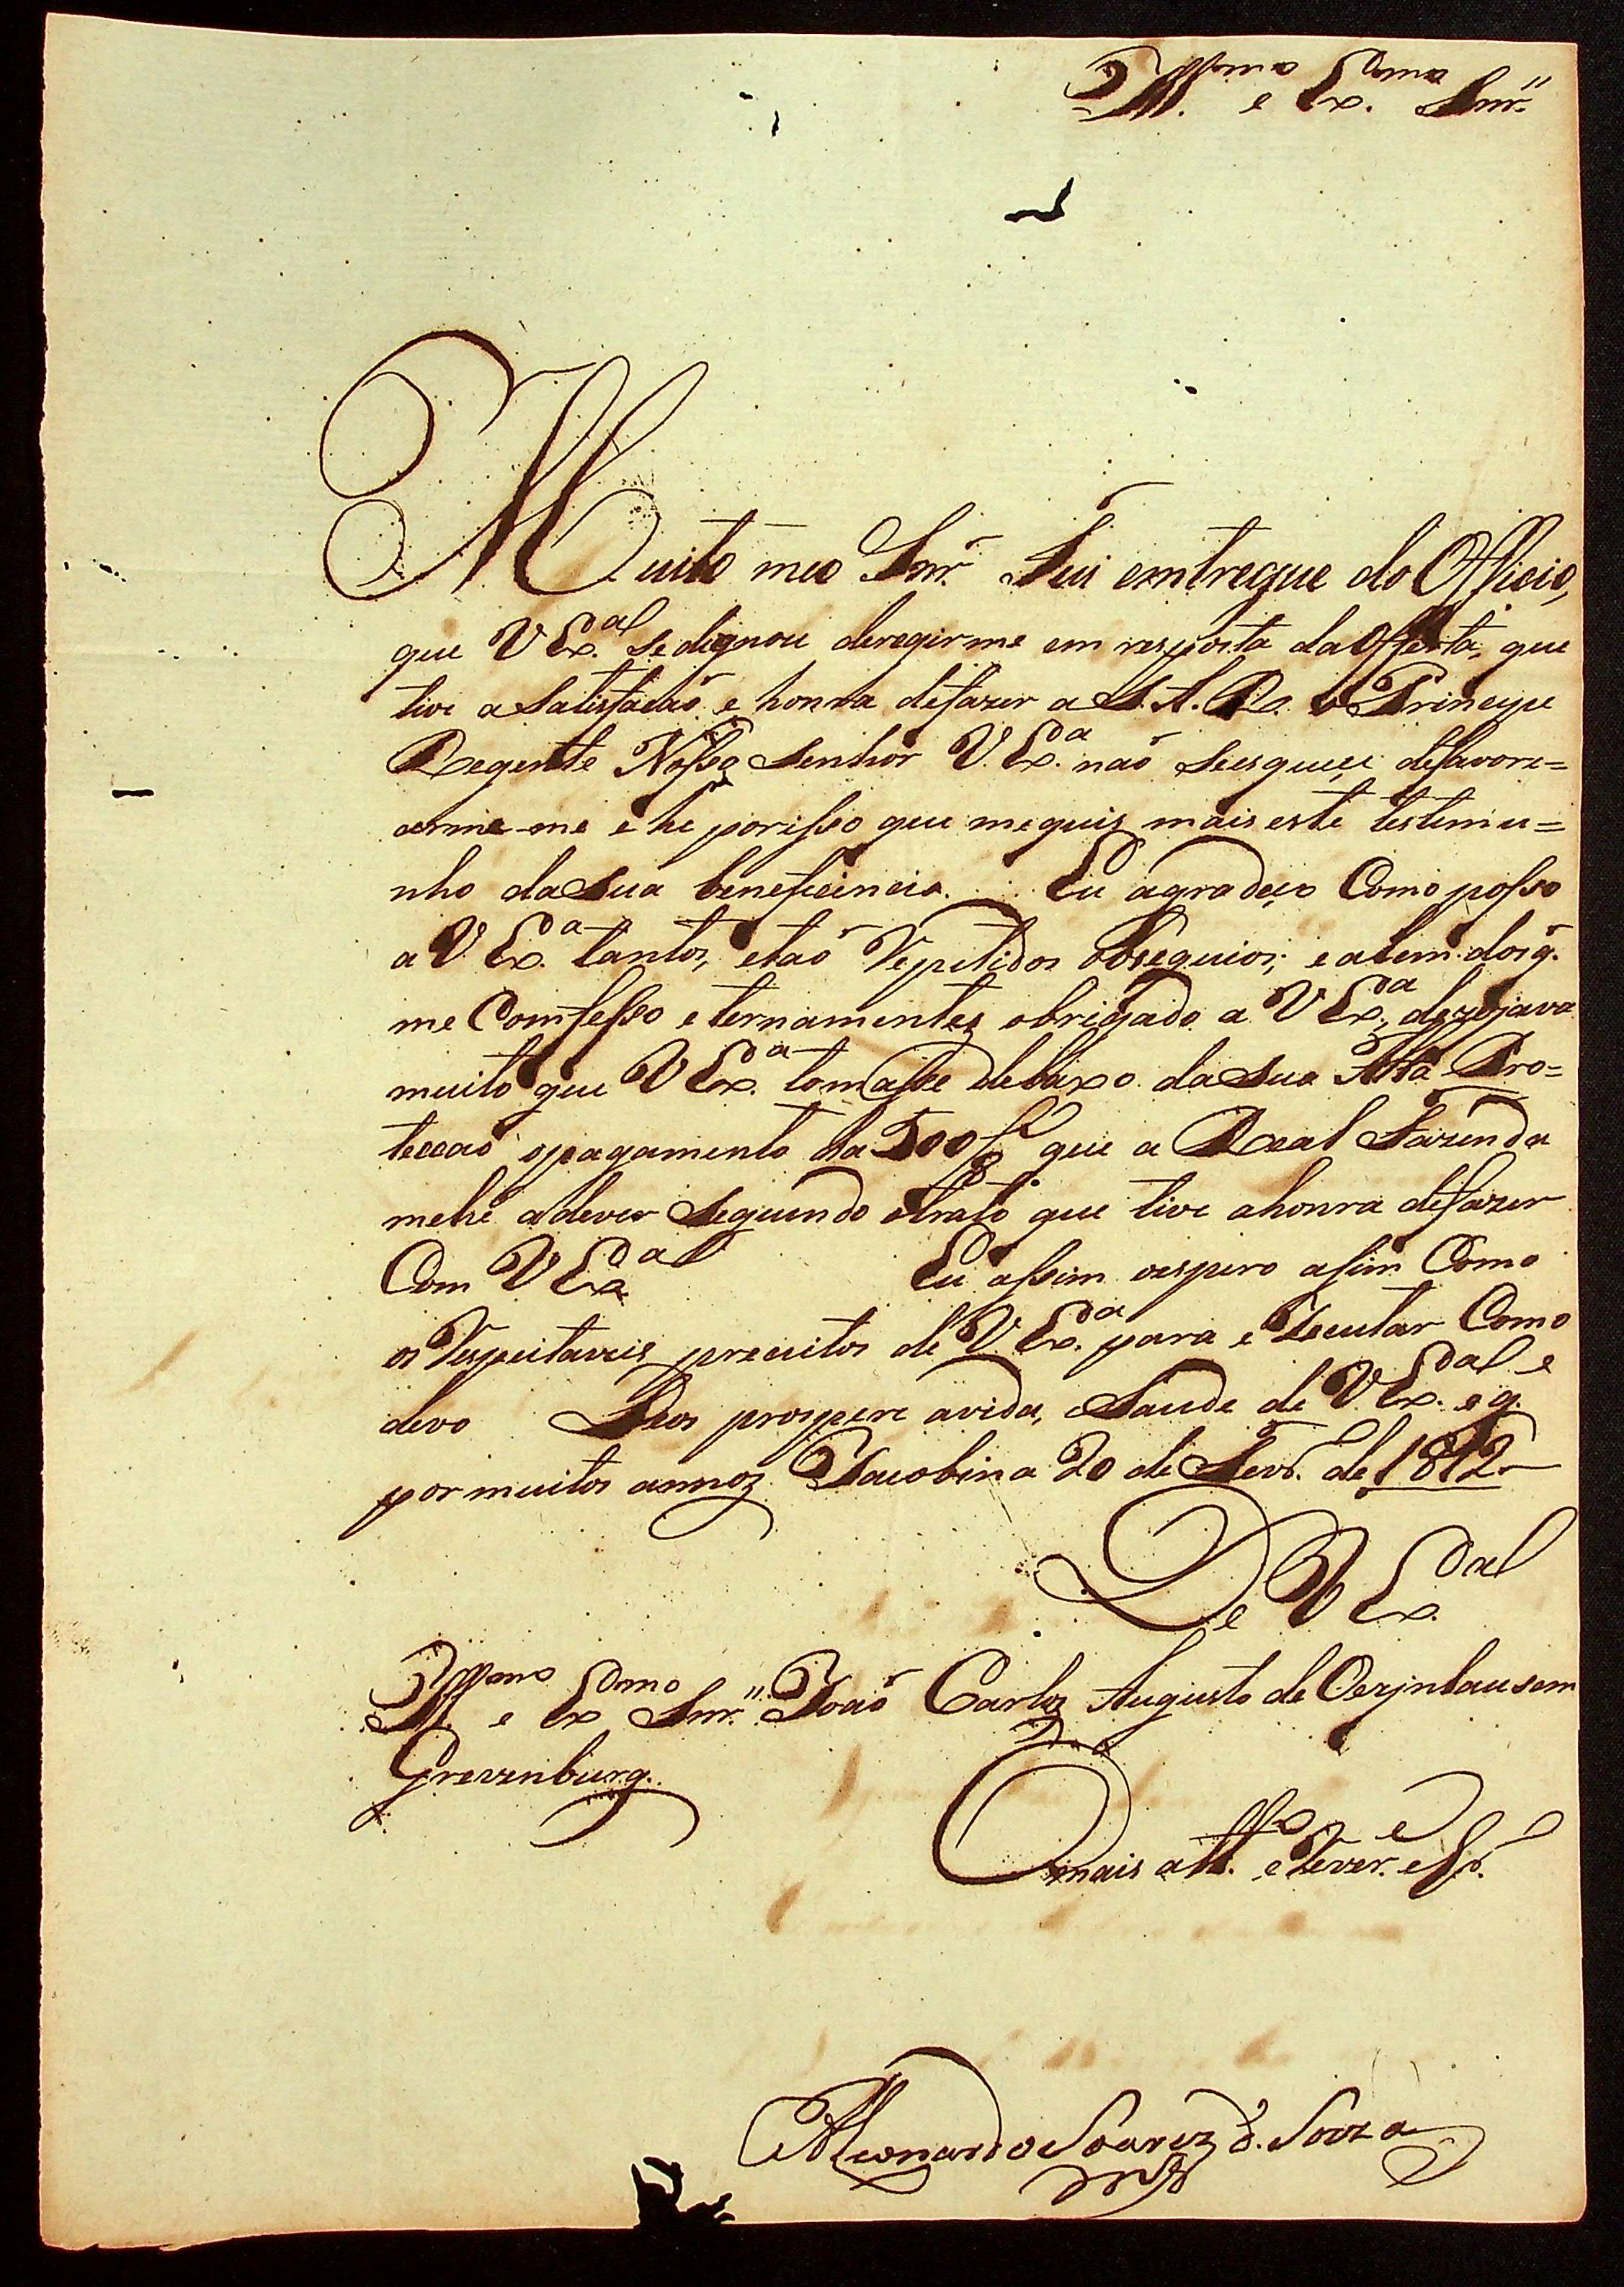 Ill.mo e Ex.mo Snr.
Muito meo Snr. Fui emtregue do Officio,
que V Ex.a se dignou deregirme em resposta da Offerta, que
tive a Satisfacaõ e honra defazer a S. A. R. o Principe
Regente Nosso Senhor V. Ex.a naõ seesqueçe defavore=
cerme-me e he porisso que mequis mais este testemu=
nho da Sua beneficiencia. Eu agradeço Como posso
a V Ex.a tantos, etaõ Repetidos Obsequios; e alem dos q.
me Comfesso eternamentes obrigado a V Ex.a, dezejava
muito que V Ex.a tomasse debaixo da Sua Alta Pro=
teccaõ opagamento da 500/8.as que a Real Fazenda
mehe adever Seguendo otrato que tive ahonra defazer
Com V Ex.a Eu assim oespero asim Como
os Respeitaveis preceitos de V. Ex.a para eIzecutar Como
devo Deos prospere avida, eSaude de V. Ex.a e g.e
por muitos annos Jacobina 20 de Fevr.o de 1812
De V Ex.a
Ill.mo e Ex.mo Snr. Joaõ Carlos Augusto de Oerjnhausem
Grevenburg.
O mais att.o e Rever.e
Leonardo Soares d. Souza